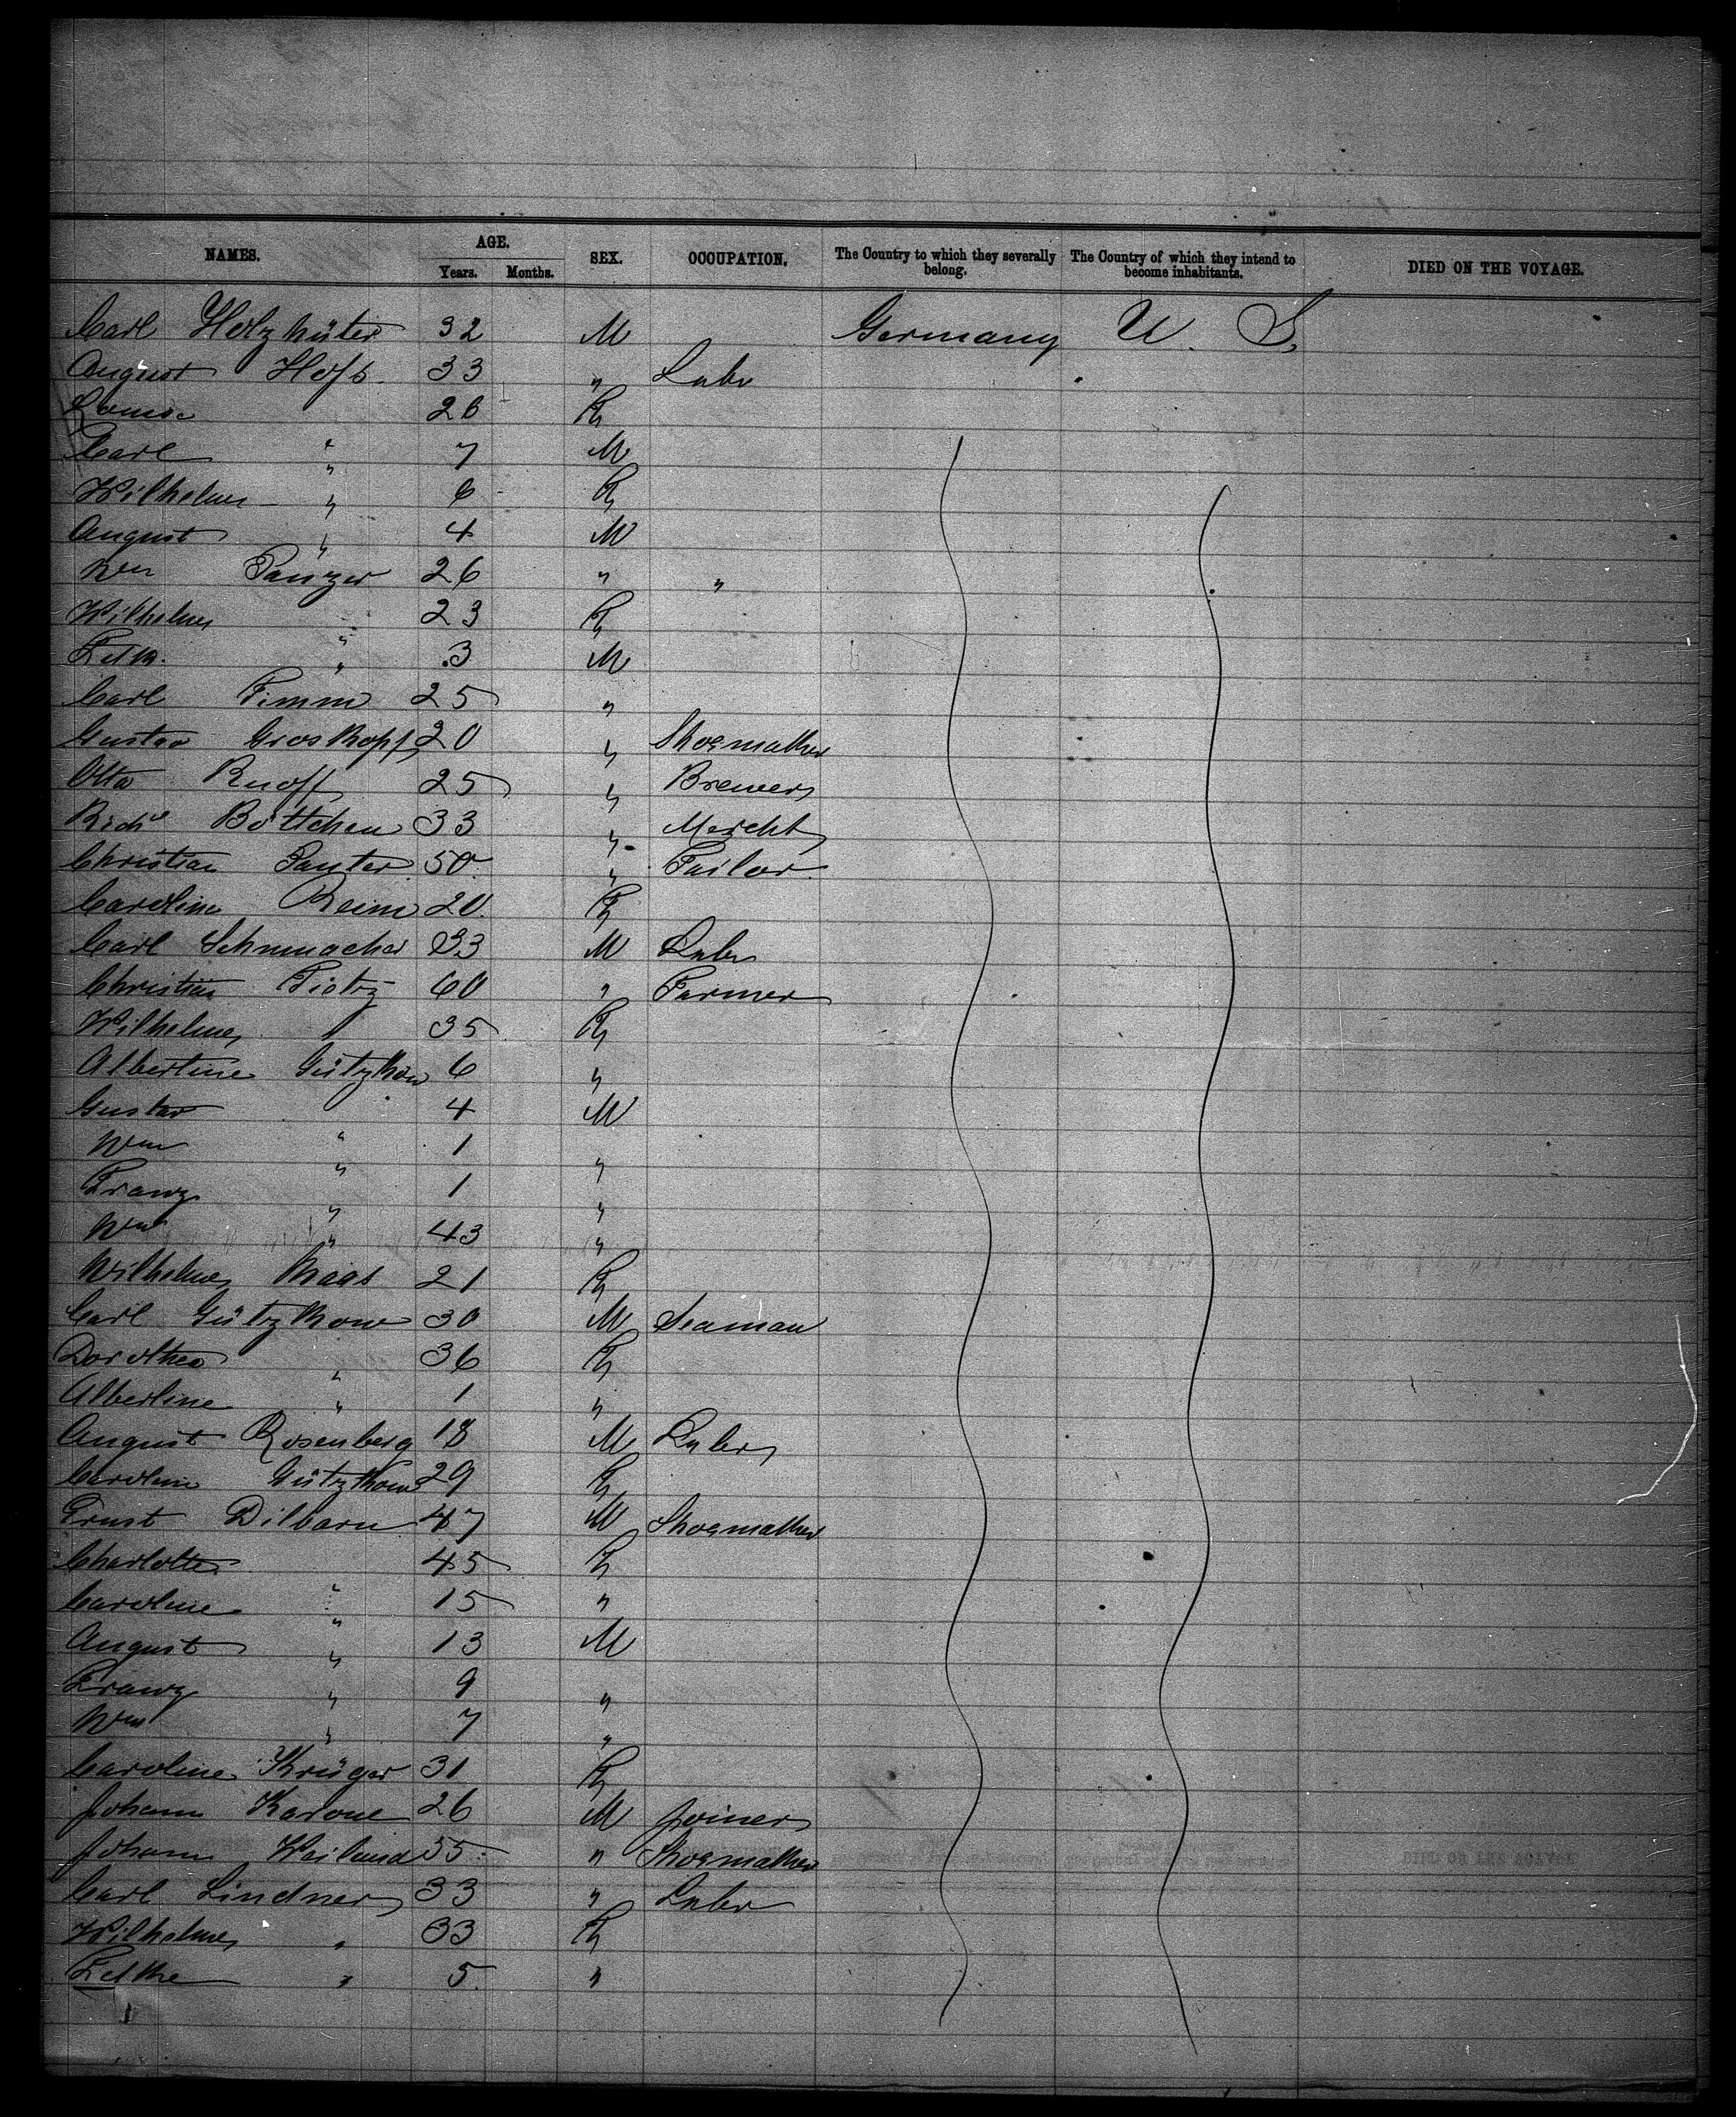 NAMES. AGE. Years. Months. SEX. OCCUPATION. The Country to which they severally belong. The Country of which they intend to become inhabitants. DIED ON THE VOYAGE.
Carl Holzhüter 32 M Germany U. S.
August Hofs 33 " Labr
Louise 26 F
Carl " 7 M
Wilhelm " 6 F
August " 4 M
Wm Panzer 26 " "
Wilhelm " 23 F
" 3 M
Carl Timm 25 "
Gustav Groskopf 20 " Shoemaker
Otto Ruoff 25 " Brewer
Richd Böttcher 33 " Mercht
Christian Panter 50 " Tailor
Caroline Reim 20 F
Carl Schumacher 33 M Labr
Christian Tietz 60 " Farmer
Wilhelme " 35 F
Albertine Gützkow 6 "
Gustav " 4 M
Wm " 1 "
Franz " 1 "
Wm " 43 "
Wilhelme Maas 21 F
Carl Gützkow 30 M Seaman
Dorothea " 36 F
Albertine " 1 "
August Rosenberg 18 M Labr
Caroline Gützkow 29 F
Ernst Dilbarn 47 M Shoemaker
Charlotte 45 F
Caroline " 15 "
August " 13 M
Franz " 9 "
Wm " 7 "
Caroline Krüger 31 F
Johann Karone 26 M Joiner
Johann Weiland 35 " Shoemaker
Carl Lindner 33 " Labr
Wilhelme " 33 F
" 5 "